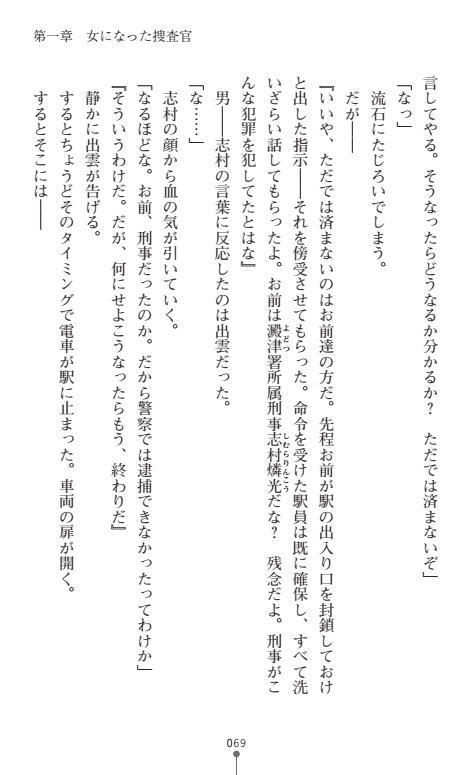 第一章　女になった捜査官
言してやる。そうなったらどうなるか分かるか？　ただでは済まないぞ」
「なっ」
流石にたじろいでしまう。
だが――
『いいや、ただでは済まないのはお前達の方だ。先程お前が駅の出入り口を封鎖しておけ
と出した指示――それを傍受させてもらった。命令を受けた駅員は既に確保し、すべて洗
いざらい話してもらったよ。お前は澱津署所属刑事志村燐光だな？　残念だよ。刑事がこ
んな犯罪を犯してたとはな』
男――志村の言葉に反応したのは出雲だった。
「な……」
志村の顔から血の気が引いていく。
「なるほどな。お前、刑事だったのか。だから警察では逮捕できなかったってわけか」
『そういうわけだ。だが、何にせよこうなったらもう、終わりだ』
静かに出雲が告げる。
するとちょうどそのタイミングで電車が駅に止まった。車両の扉が開く。
するとそこには――
よどつ
しむらりんこう
069